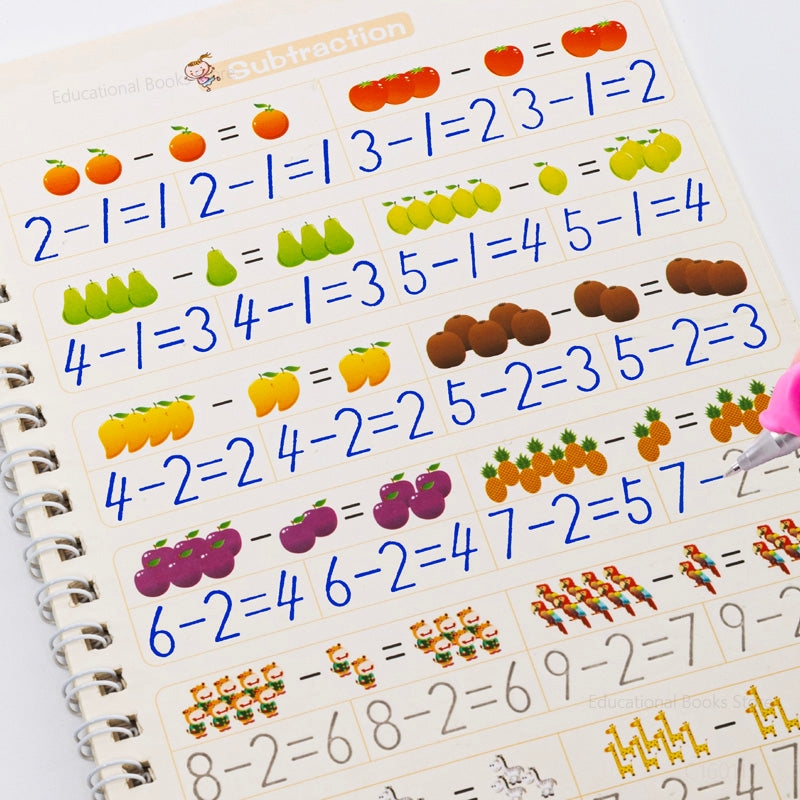 Subtraction
Educational Books Store
2-1=1 2-1=1 3-1=2 3-1=2
4-1=3 4-1=3 5-1=4 5-1=4
4-2=2 4-2=2 5-2=3 5-2=3
6-2=4 6-2=4 7-2=5 7-2=
8-2=6 8-2=6 9-2=7 9-2
-2=4 7
Educational Books Store